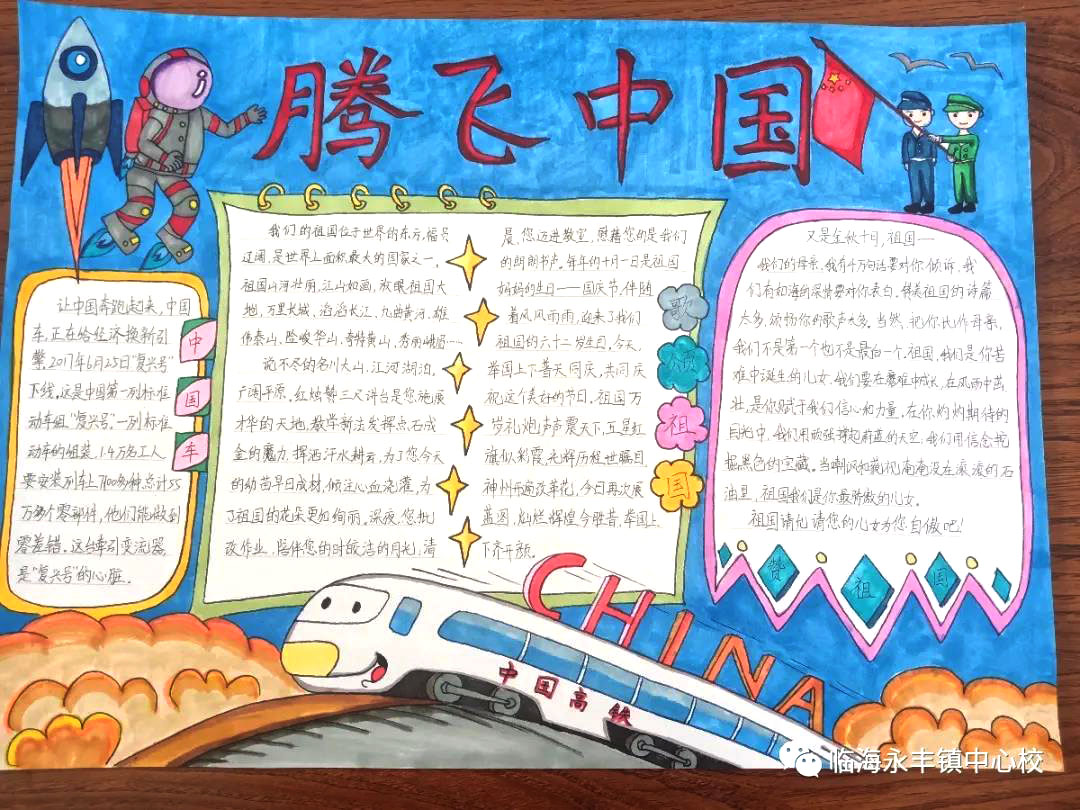 腾飞中国
让中国奔跑起来,中国
车,正在给经济换新引
擎,2017年6月25日"复兴号"
下线,这是中国第一列标准
动车组"复兴号"。一列标准
动车的组装,1.4万名工人
要安装列车上7100多种总计55
万多个零部件,他们能做到
零差错。这台牵引变流器
是"复兴号"的心脏。
中
国
车
我们的祖国位于世界的东方,幅员
辽阔,是世界上面积最大的国家之一,
祖国山河壮丽,江山如画,放眼祖国大
地,万里长城,滔滔长江,九曲黄河,雄
伟泰山,险峻华山,奇特黄山,秀丽峨眉……
说不尽的名川大山,江河湖泊,
广阔平原,红烛赞三尺讲台是您施展
才华的天地,教学新法发挥点石成
金的魔力,挥洒汗水耕云,为了您今天
的幼苗早日成材,倾注心血浇灌,为
了祖国的花朵更加绚丽,深夜,您批
改作业,陪伴您的时皎洁的月光,清
晨,您迈进教室,慰藉您的是我们
的朗朗书声。每年的十月一日是祖国
妈妈的生日——国庆节,伴随
着风风雨雨,迎来了我们
祖国的六十二岁生日,今天,
举国上下普天同庆,共同庆
祝这个美好的节日,祖国万
岁礼炮声声震天下,五星红
旗似彩霞,光辉历程世瞩目,
神州开遍改革花,今日再次展
蓝图,灿烂辉煌今胜昔,举国上
下齐开颜。
歌
颂
祖
国
又是金秋十月,祖国——
我们的母亲,我有千万句话要对你倾诉,我
们有和海的深情要对你表白,赞美祖国的诗篇
太多,颂扬你的歌声太多,当然,把你比作母亲,
我们不是第一个也不是最后一个,祖国,我们是你苦
难中诞生的儿女,我们要在磨难中成长,在风雨中茁
壮,是你赋于我们信心和力量,在你灼灼期待的
目光中,我们用顽强撑起蔚蓝的天空,我们用信念挖
掘黑色的宝藏。当喇叭和藐视淹没在滚滚的石
油里,祖国我们是你最骄傲的儿女。
祖国请允请您的儿女为您自傲吧!
赞
祖
国
CHINA
中国高铁
临海永丰镇中心校